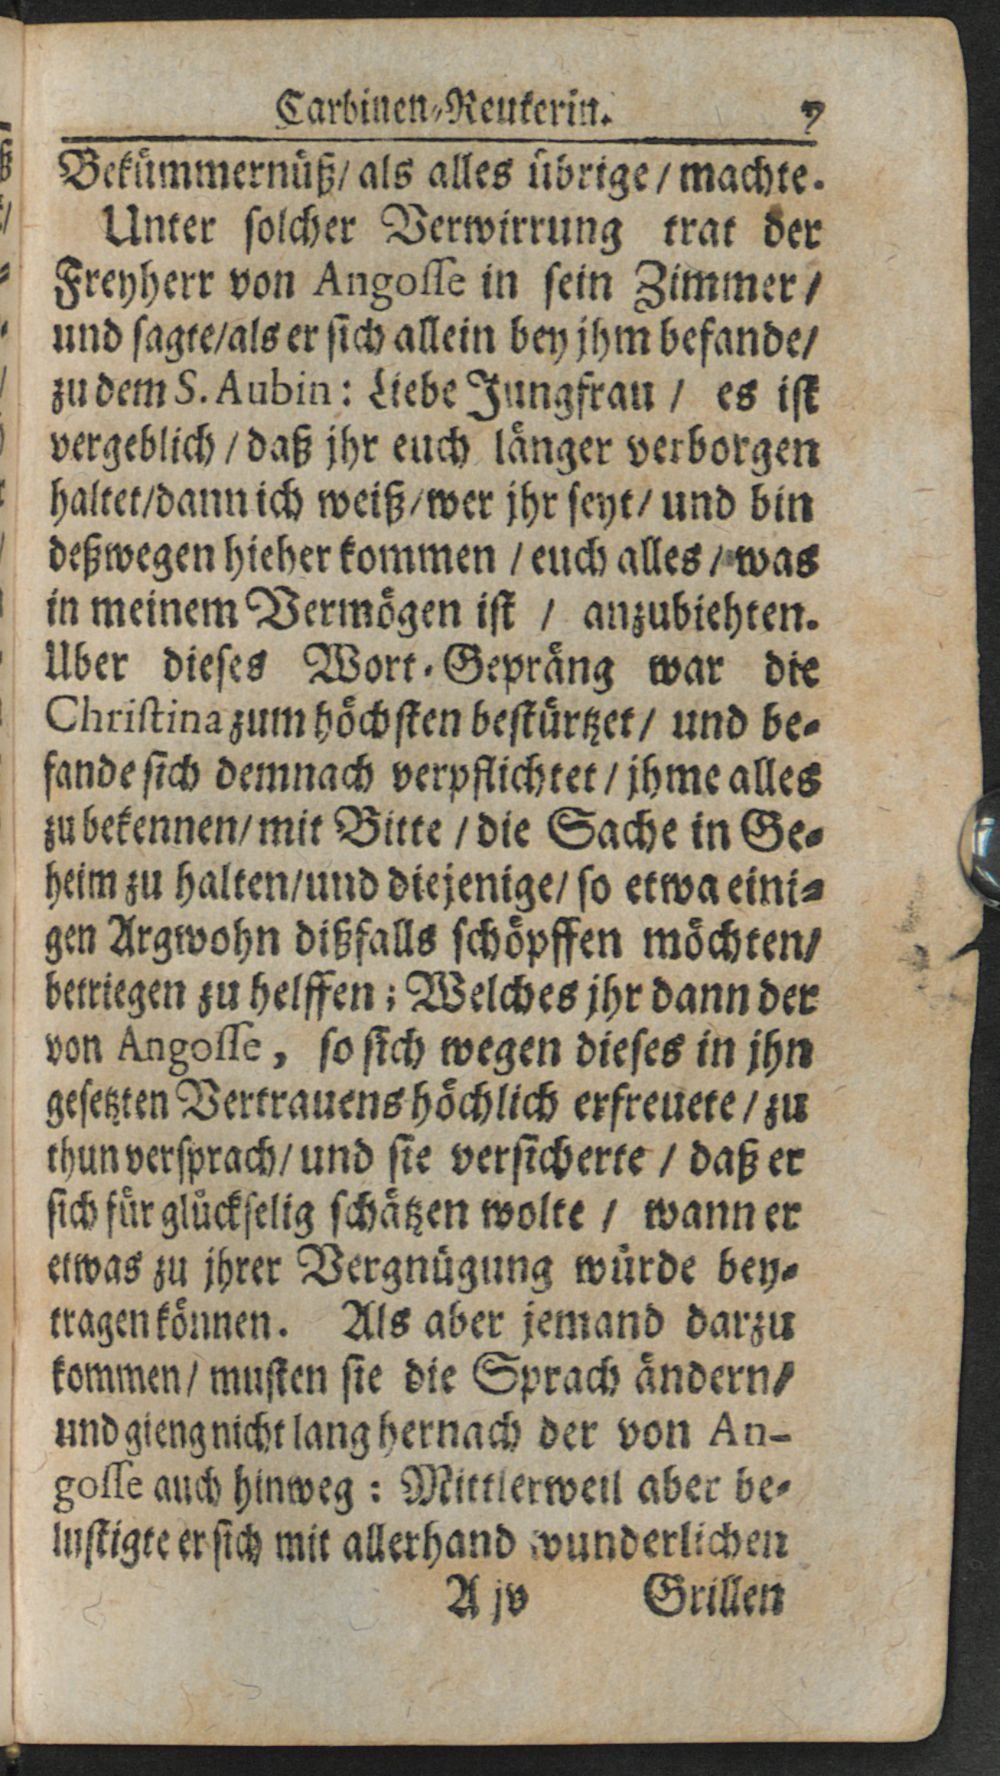 Carbinen-Reuterin. 7
Bekümmernüß/ als alles übrige / machte.
Unter solcher Verwirrung trat der
Freyherr von Angosse in sein Zimmer /
und sagte/als er sich allein bey jhm befande/
zu dem S. Aubin: Liebe Jungfrau / es ist
vergeblich / daß jhr euch länger verborgen
haltet/dann ich weiß/wer jhr seyt/ und bin
deßwegen hieher kommen / euch alles / was
in meinem Vermögen ist / anzubiehten.
Uber dieses Wort-Gepräng war die
Christina zum höchsten bestürtzet/ und be-
fande sich demnach verpflichtet / jhme alles
zu bekennen/ mit Bitte / die Sache in Ge-
heim zu halten/und diejenige/ so etwa eini-
gen Argwohn dißfalls schöpffen möchten/
betriegen zu helffen; Welches jhr dann der
von Angosse, so sich wegen dieses in jhn
gesetzten Vertrauens höchlich erfreuete / zu
thun versprach/ und sie versicherte / daß er
sich für glückselig schätzen wolte / wann er
etwas zu jhrer Vergnügung würde bey-
tragen können. Als aber jemand darzu
kommen/ musten sie die Sprach ändern/
und gieng nicht lang hernach der von An-
gosse auch hinweg: Mittlerweil aber be-
lustigte er sich mit allerhand wunderlichen
A jv Grillen